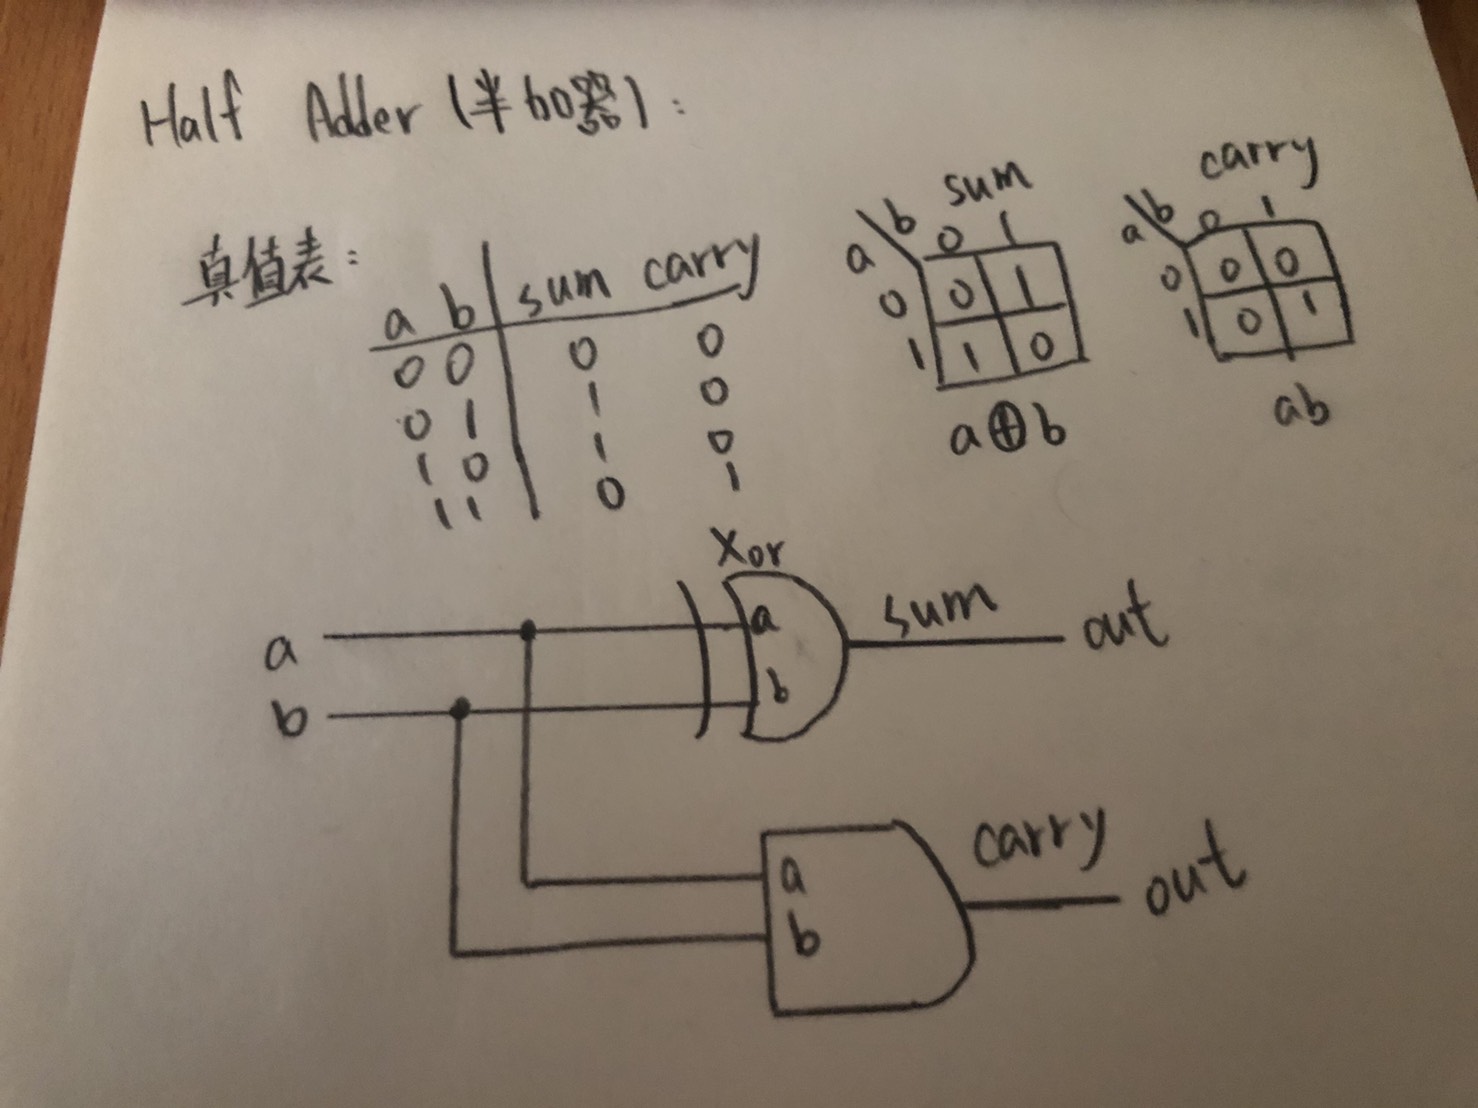 Half Adder (半加器):
真值表:
a b sum carry
0 0 0 0
0 1 1 0
1 0 1 0
1 1 0 1
sum
a\b 0 1
0 0 1
1 1 0
a⊕b
carry
a\b 0 1
0 0 0
1 0 1
ab
Xor
a a sum out
b b
a carry out
b